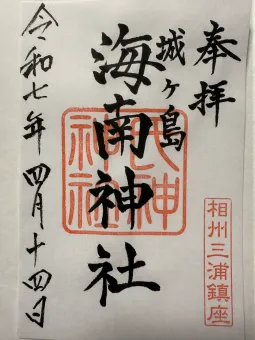 奉拝
相州三浦鎮座
城ヶ島
海南神社
令和七年 四月十四日